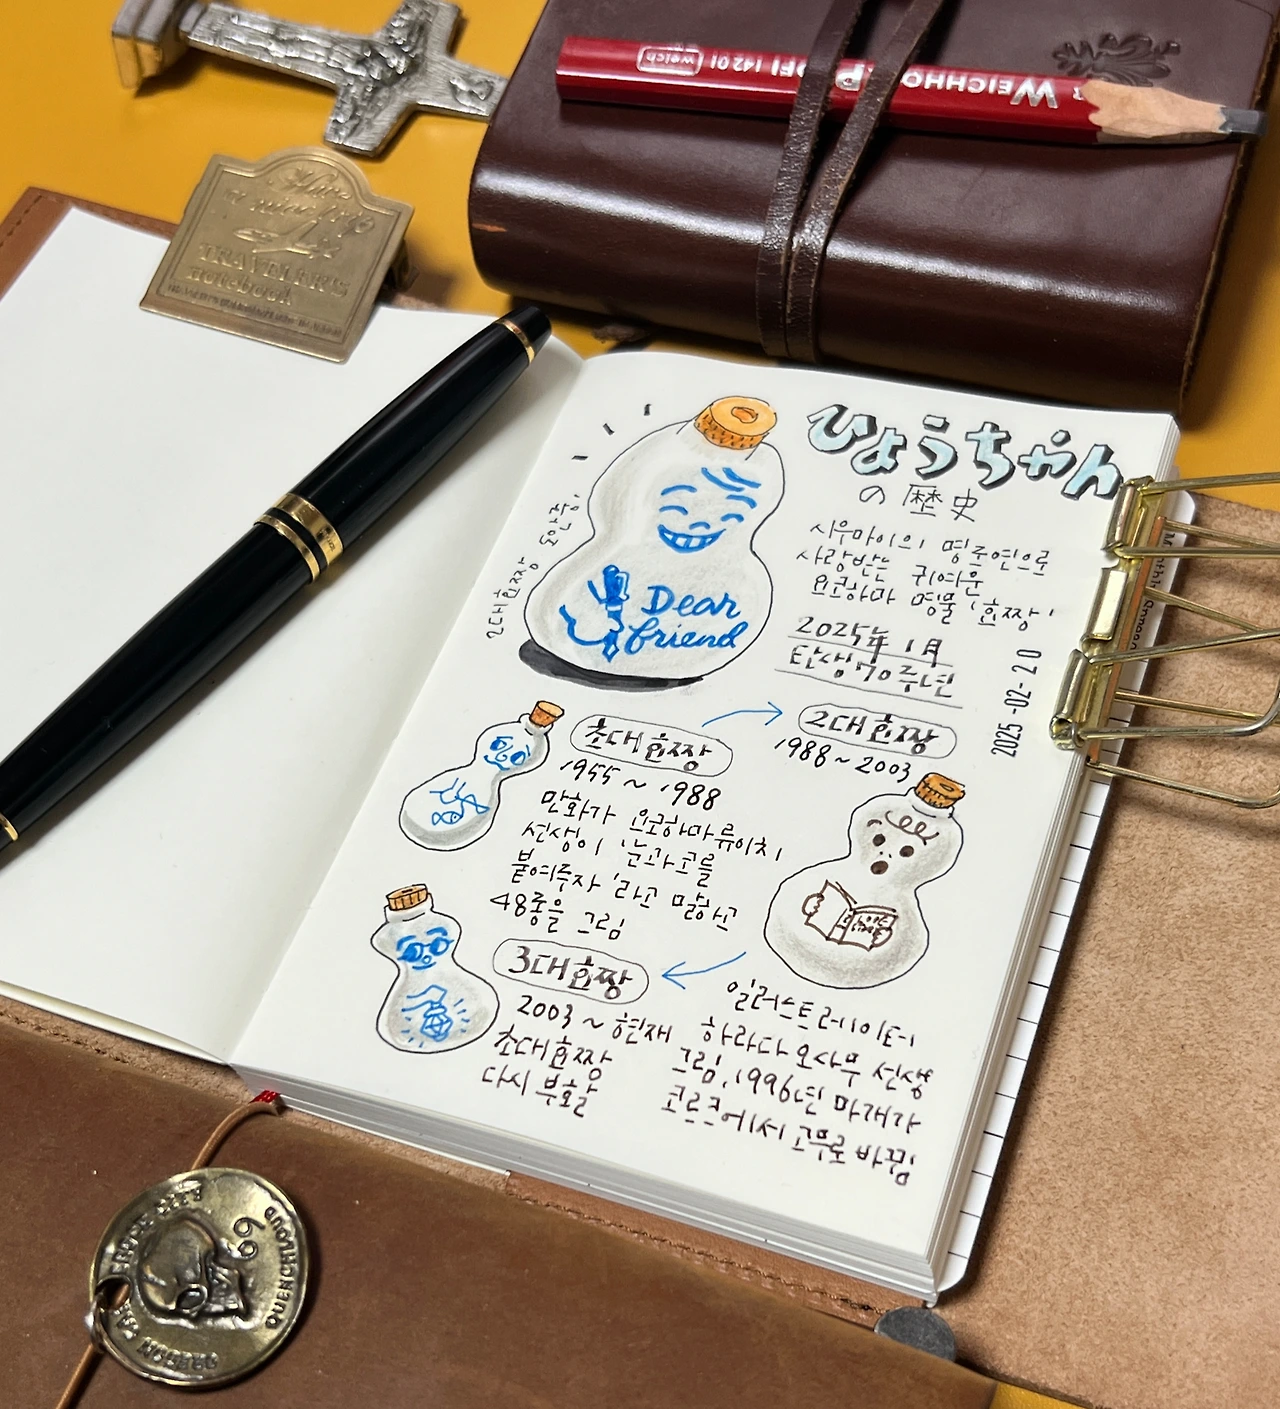 WEICHHOLZPROFI 14201
weich
TRAVELER'S
notebook
ひょうちゃん
の歴史
시우마이의 명조연으로
사랑받는 귀여운
요코하마 명물 '효짱'
2025年 1月
탄생 70주년
2025-02-20
2대효짱 도안 중,
Dear
friend
초대효짱
1955~1988
만화가 요코하마류이치
선생이 '눈과 코를
붙여주자'라고 말하고
48종을 그림
2대효짱
1988~2003
일러스트레이터
하라다 오사무 선생
그림, 1996년 마개가
코르크에서 고무로 바뀜
3대효짱
2003~현재
초대효짱
다시 부활
69
QUENCHLOUD